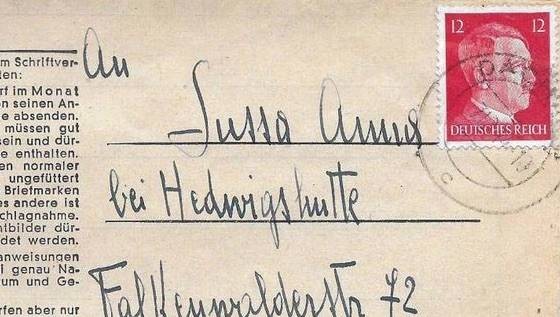 m Schriftver-
ten:
rf im Monat
on seinen An-
e absenden.
müssen gut
sein und dür-
e enthalten.
en normaler
ungefüttert
Briefmarken
es andere ist
chlagnahme.
htbilder dür-
det werden.
anweisungen
l genau Na-
um und Ge-
rfen aber nur
An
Sussa Anna
bei Hedwigshutte
Falkenwalderstr 72
12 12
DEUTSCHES REICH
DA